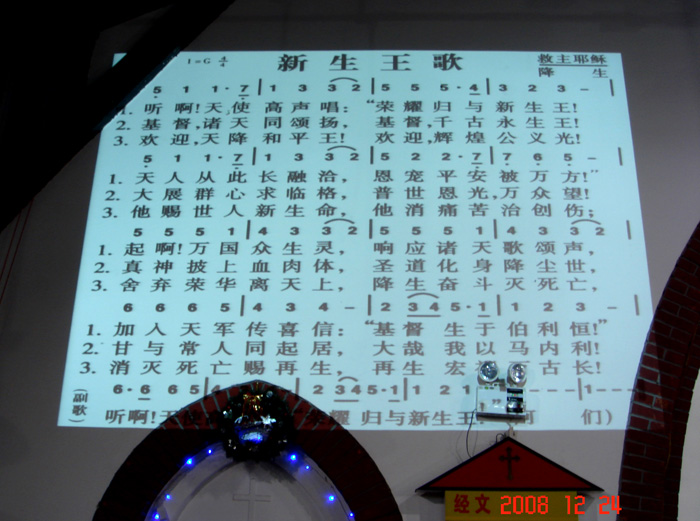 1=G 4/4 新生王歌 救主耶稣
降 生
5 5 1 1·7 | 1 3 3 2 | 5 5 5·4 | 3 2 3 – |
1. 听啊!天使高声唱:“荣耀归与新生王!
2. 基督,诸天同颂扬,基督,千古永生王!
3. 欢迎,天降和平王!欢迎,辉煌公义光!
5 1 1·7 | 1 3 3 2 | 5 2 2·7 | 7 6 5 – |
1. 天人从此长融洽,恩宠平安被万方!”
2. 大展群心求临格,普世恩光,万众望!
3. 他赐世人新生命,他消痛苦治创伤;
5 5 5 1 | 4 3 3 2 | 5 5 5 1 | 4 3 3 2 |
1. 起啊!万国众生灵,响应诸天歌颂声,
2. 真神披上血肉体,圣道化身降尘世,
3. 舍弃荣华离天上,降生奋斗灭死亡,
6 6 6 5 | 4 3 4 – | 2 3 4 5·1 | 1 2 3 – |
1. 加入天军传喜信:“基督生于伯利恒!”
2. 甘与常人同起居,大哉我以马内利!
3. 消灭死亡赐再生,再生宏 古长!
6·6 6 5 2 3 4 5·1 1 2 1 – 1 –
(副歌) 听啊! 耀归与新生王. ” 们)
经文
2008 12 24